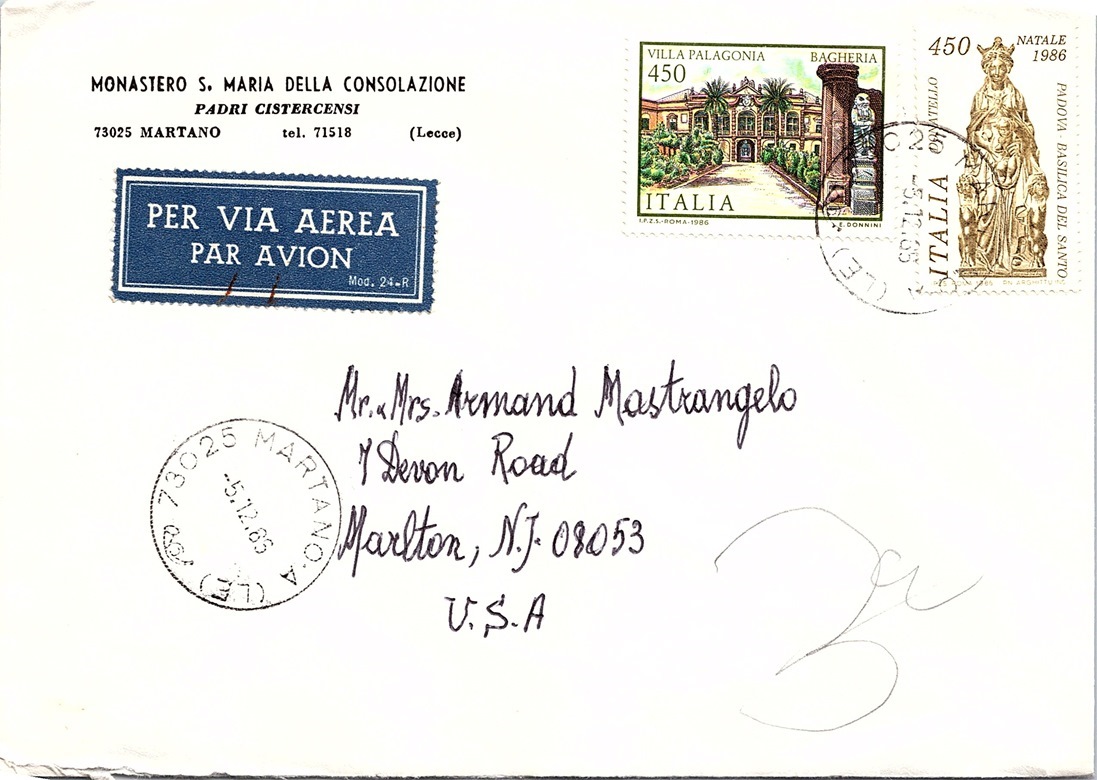 MONASTERO S. MARIA DELLA CONSOLAZIONE
PADRI CISTERCENSI
73025 MARTANO tel. 71518 (Lecce)
PER VIA AEREA
PAR AVION
Mod. 24-R
VILLA PALAGONIA BAGHERIA
450
ITALIA
I.P.Z.S.-ROMA-1986 E. DONNINI
450 NATALE
1986
DONATELLO
ITALIA
PADOVA - BASILICA DEL SANTO
-5.12.86
(LE)
Mr. & Mrs. Armand Mastrangelo
7 Devon Road
Marlton, N.J. 08053
U.S.A
73025 MARTANO·A (LE)
-5.12.86